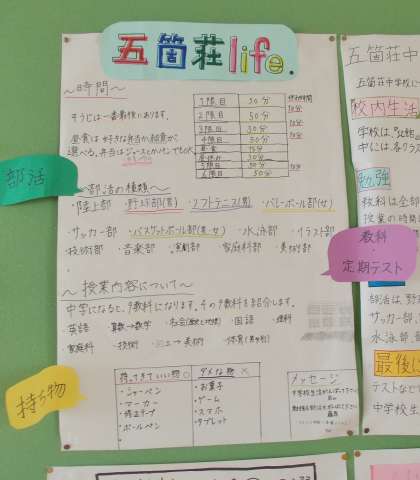 五箇荘life.
～時間～
そうじは一番最後にあります。
昼食は好きな弁当か給食か
選べる。弁当は
1限目 50分
2限目 50分
3限目 50分
4限目 50分
昼食
昼休み
5限目 50分
6限目 50分
10分
10分
10分
10分
部活
～部活の種類～
・陸上部 ・野球部(男) ・ソフトテニス(男) ・バレーボール部(女)
・サッカー部 ・バスケットボール部(男・女) ・水泳部 ・イラスト部
・技術部 ・音楽部 ・演劇部 ・家庭科部 ・美術部
～授業内容について～
中学になると、9教科になります。その9教科を紹介します。
・英語 ・算数→数学 ・社会 ・国語 ・理科
・家庭科 ・技術 ・図工→美術 ・体育(男女別)
持ち物
持ってきていい物 ○
・シャーペン
・マーカー
・修正テープ
・ボールペン
ダメな物 ×
・お菓子
・ゲーム
・スマホ
・タブレット
メッセージ
五箇荘中
五箇荘中学校に
校内生活
学校は、
中には各クラス
勉強
教科は全部
授業の時間
教科
・
定期テスト
部活は、野
サッカー部、
水泳部、
最後に
テストなどで
中学校生